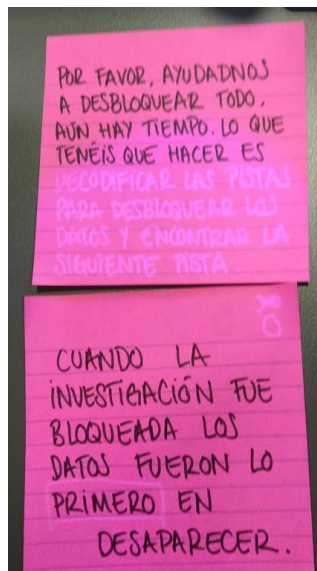 POR FAVOR, AYUDADNOS
A DESBLOQUEAR TODO,
AÚN HAY TIEMPO. LO QUE
TENÉIS QUE HACER ES
DECODIFICAR LAS PISTAS
PARA DESBLOQUEAR LOS
DATOS Y ENCONTRAR LA
SIGUIENTE PISTA.
CUANDO LA
INVESTIGACIÓN FUE
BLOQUEADA LOS
DATOS FUERON LO
PRIMERO EN
DESAPARECER.